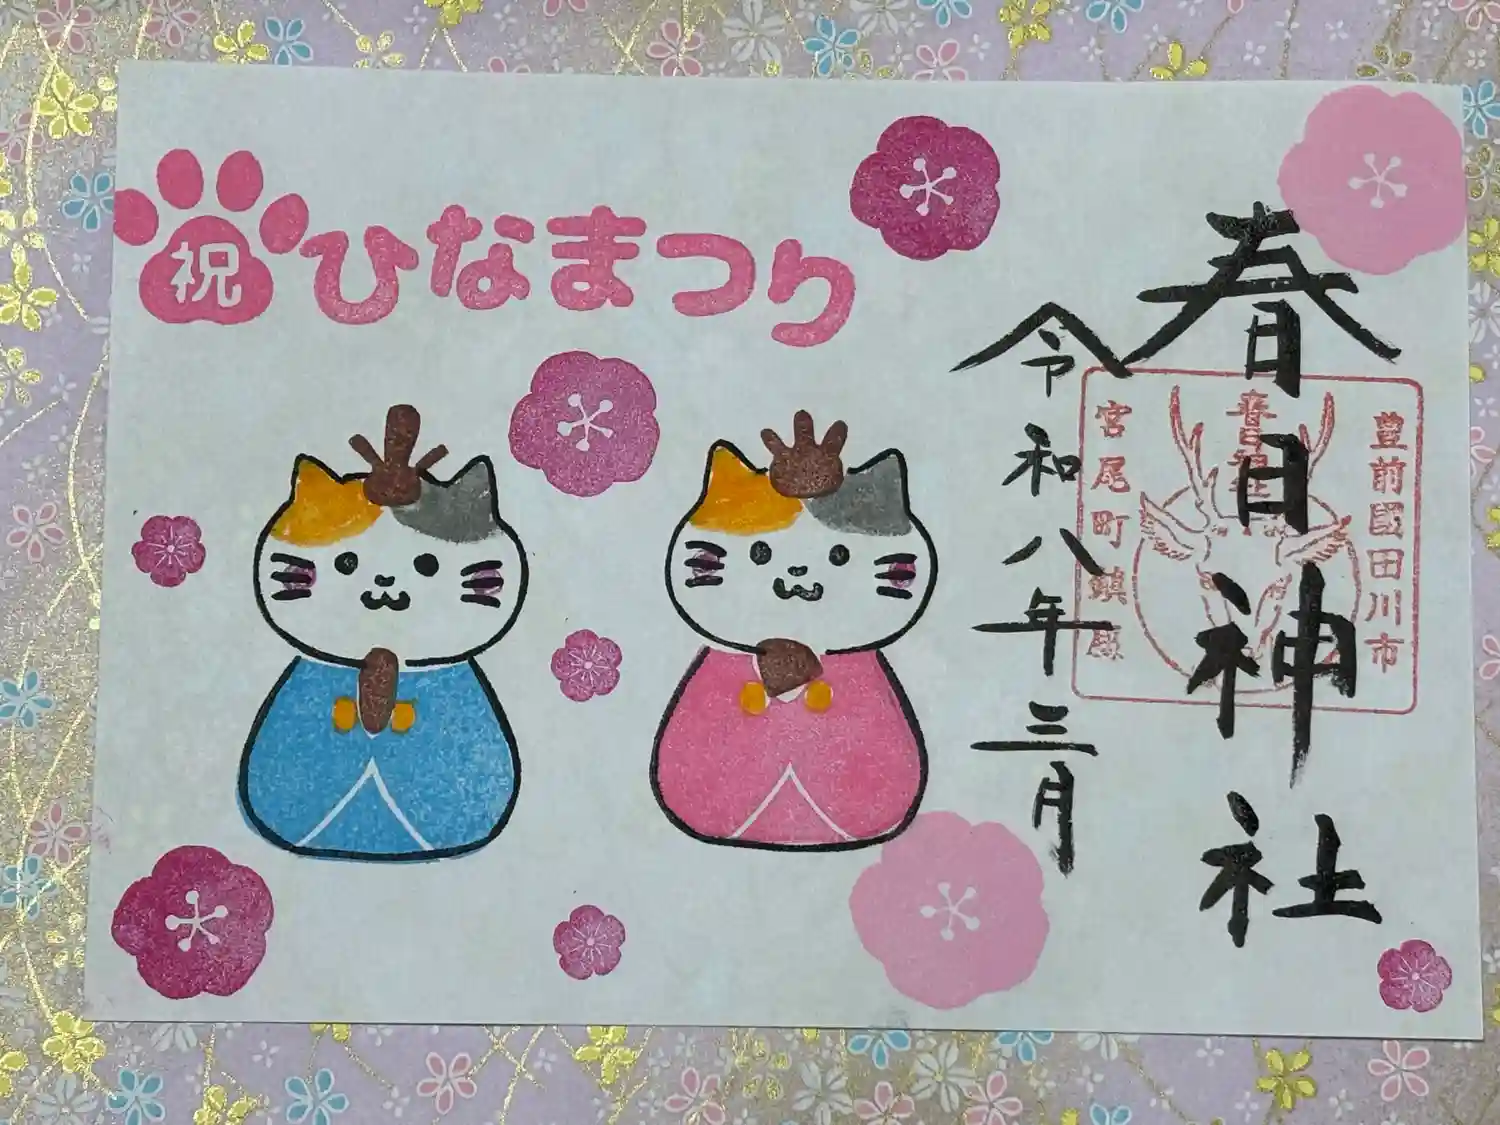 祝
ひなまつり
春日神社
令和八年三月
豊前國田川市
春日神社
宮尾町鎮座